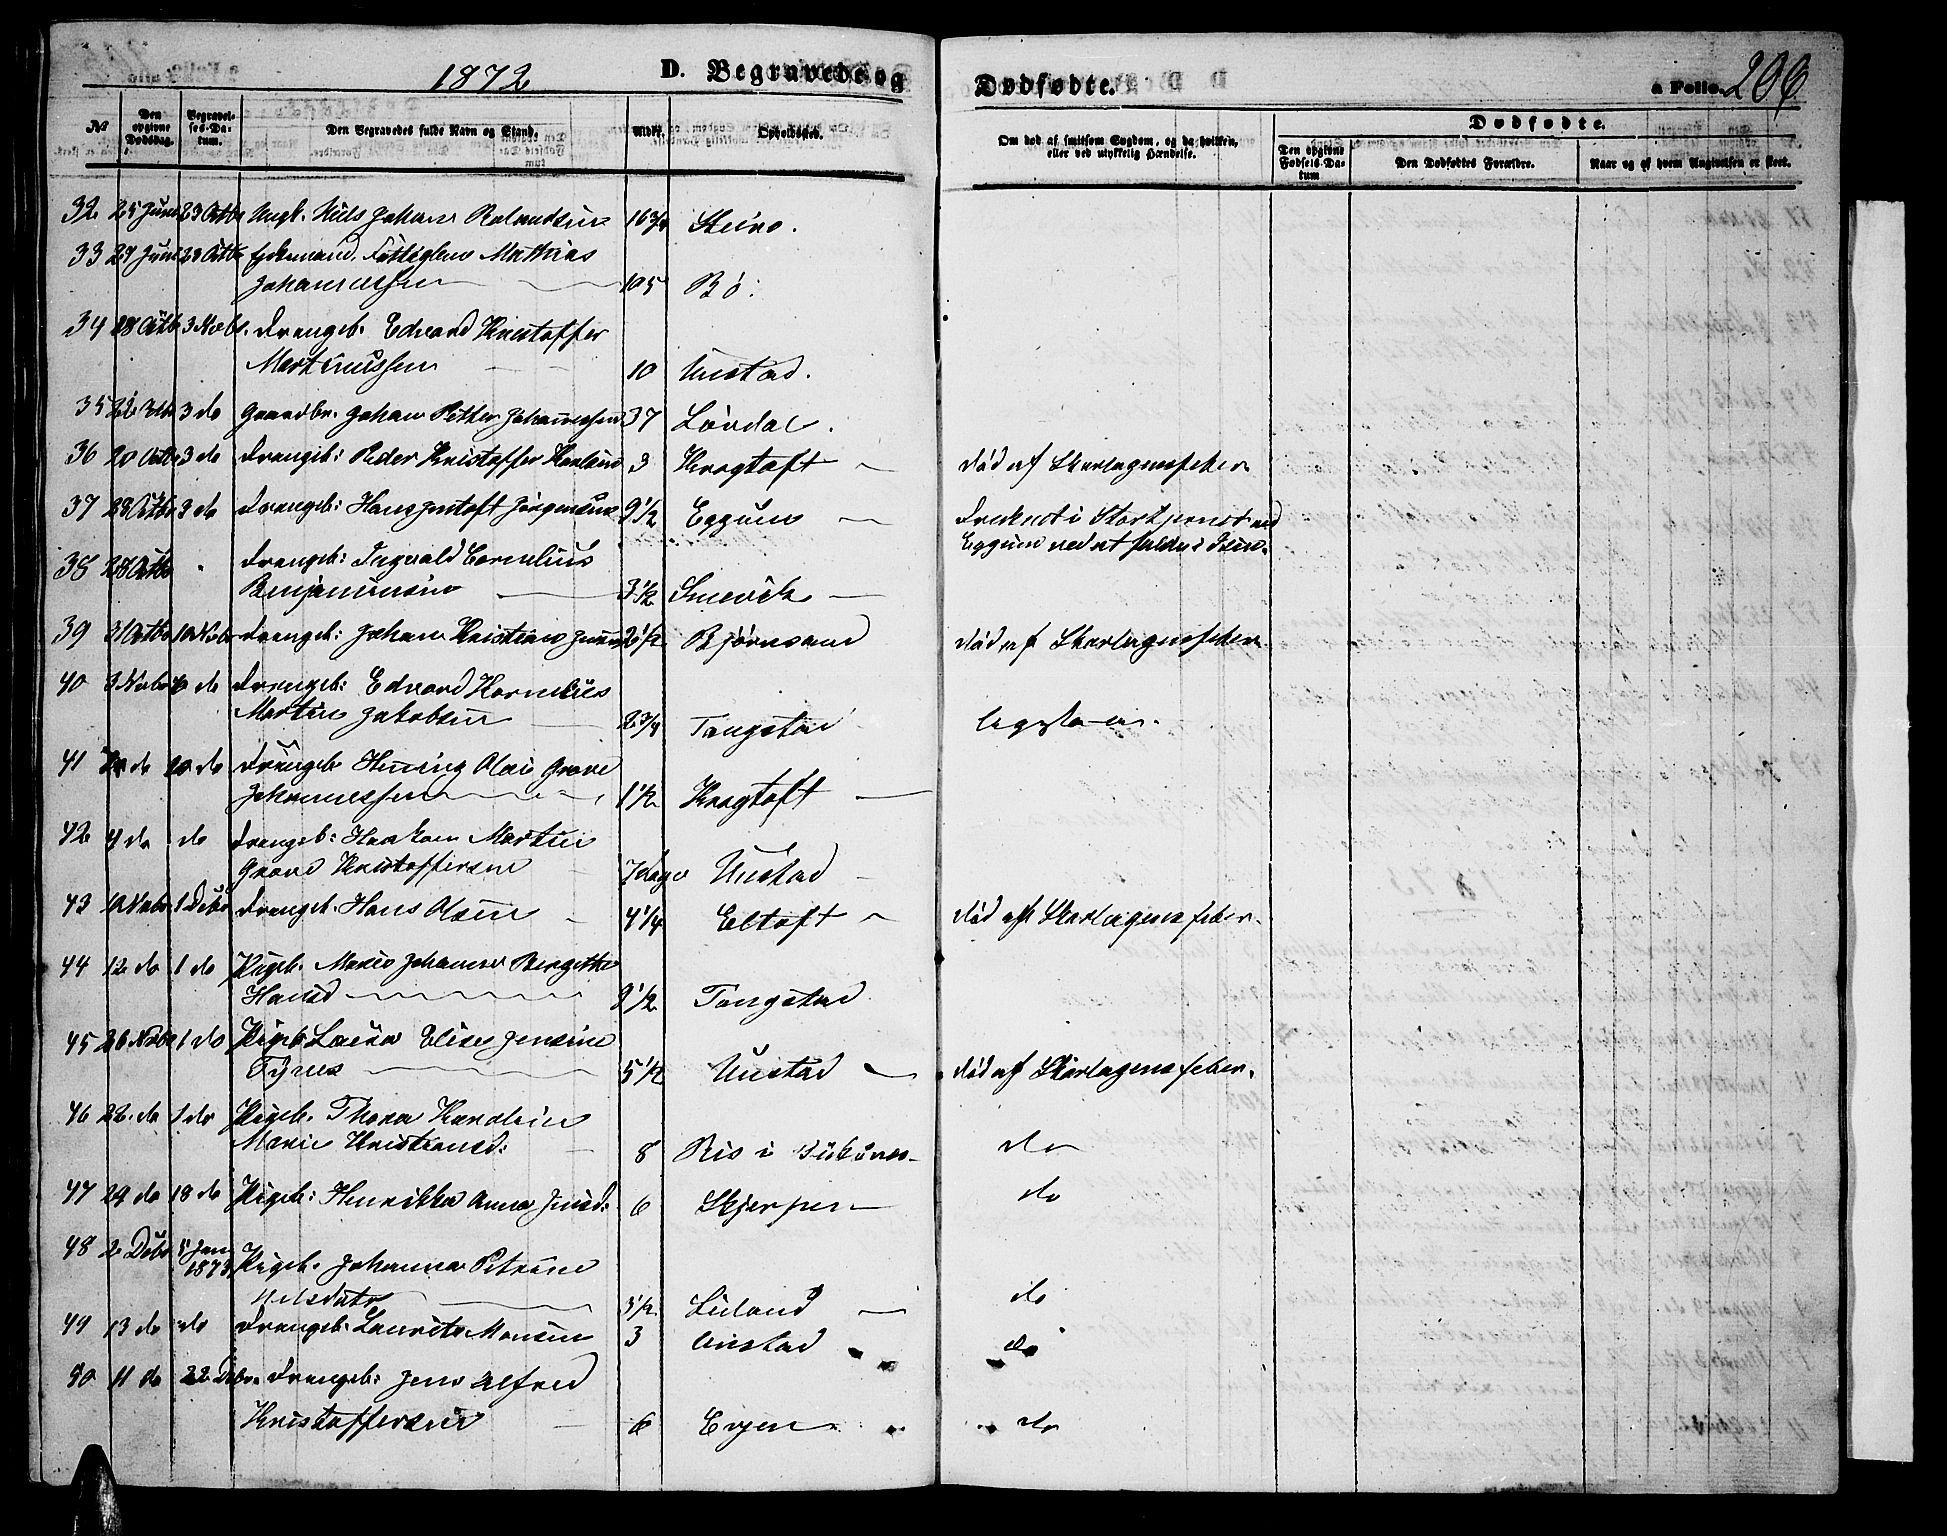 1872 D. Begravede og Dødfødte. a Folio. 206
№ Den opgivne Dødsdag. Begravelses-Datum. Den Begravedes fulde Navn og Stand. Alder. Opholdssted. Om død af smitsom Sygdom, og da hvilken, eller ved ulykkelig Hændelse. Dødfødte.
Den opgivne Fødsels-Datum Den Dødfødtes Forældre. Naar og af hvem Angivelsen er skeet.
32 25 Juni 23 Octbr Ungk. Nils Johan Rolandsen 16 3/4 Steine.
33 27 Juni 23 Octbr Enkemand, Fattiglem Mathias
Johannessen 105 Bø.
34 28 Octbr 3 Novbr. Drengeb. Edvard Kristoffer
Martinussen 10 Unstad.
35 3 do Gaardbr. Johan Petter Johannessen 37 Lørdal.
36 20 Octbr 3 do Drengeb: Peder Kristoffer Karlsen 3 Krogtoft død af Skarlagensfeber
37 28 Octbr 3 do Drengeb: Hans Jentoft Jörgensen 9 1/2 Eggum Druknet i Storkjernet ved
Eggum ved at falde i Isen.
38 28 Octbr " Drengeb: Ingvald Cornelius
Benjaminsen 3 1/2 Snevik
39 31 Octbr 10 Novbr Drengeb: Johan Kristian 2 1/2 Bjørnsand død af Skarlagensfeber
40 3 Novbr do Drengeb: Edvard Kornelius
Martin Jakobsen 2 3/4 Tangstad ligesaa.
41 do 10 do Drengeb. Hening Olai Grove
Johannessen 1 1/2 Krogtoft
42 4 do do Drengeb: Haakon Martin
Grove Kristoffersen 7 Dage Unstad
43 10 Novbr 1 Debr Drengeb. Hans Olsen 4 1/4 Eltoft død af Skarlagensfeber.
44 12 do 1 do Pigeb. Maria Johanna Bergitte
Hansd 9 1/2 Tangstad
45 26 Novbr 1 do Pigeb Laura Elise Jensine
Tynes 5 1/2 Unstad død af Skarlagensfeber.
46 22 do 1 do Pigeb. Thora Karoline
Marie Kristiansd: 8 Ris i do
47 29 do 18 do Pigeb: Henrikka Anna Jensd: 6 Skjerpen do
48 2 Debr 5 Jan
1873 Pigeb. Johanna Petrine
Nilsdatr 3 1/2 Liland do
49 13 do do Drengeb. Laurits Monsen 3 Unstad do
50 11 do 22 Debr. Drengeb: Jens Alfred
Kristoffersen 6 Evjen do